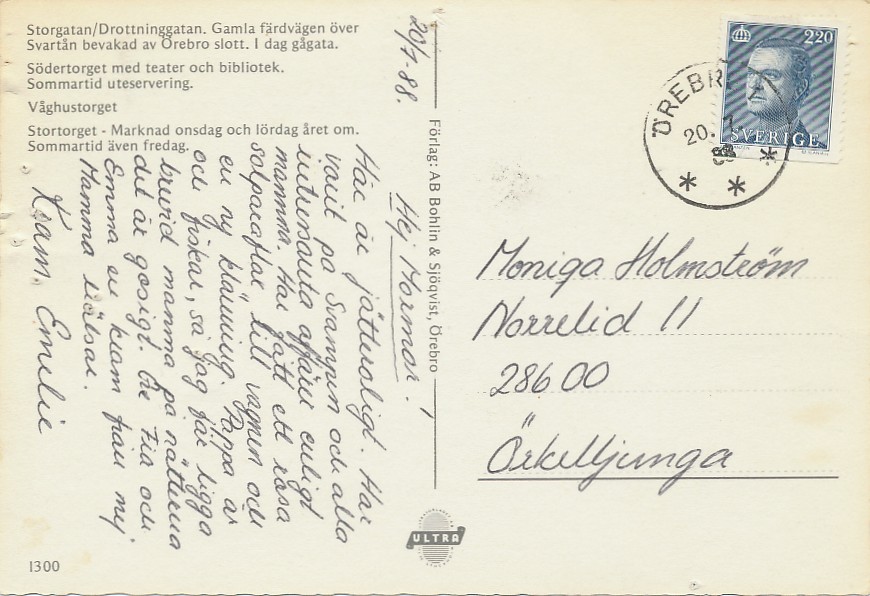 Storgatan/Drottninggatan. Gamla färdvägen över
Svartån bevakad av Örebro slott. I dag gågata.
Södertorget med teater och bibliotek.
Sommartid uteservering.
Våghustorget
Stortorget - Marknad onsdag och lördag året om.
Sommartid även fredag.
20/7-88.
Hej Mormor!
Här är jätteroligt. Har
varit på Svampen och alla
intressanta affärer enligt
mamma. Har fått ett rosa
solparaflax till vagnen och
en ny klänning. Pappa är
och fiskar, så jag får ligga
bredvid mamma på nätterna
det är gosigt. Ge Zia och
Emma en kram från mej
Mamma hälsar.
Kram, Emelie
Förlag: AB Bohlin & Sjöqvist, Örebro
ÖREBRO
20. 7.
88
2.20
SVERIGE
Moniga Holmström
Norrelid 11
28600
Örkelljunga
ULTRA
1300